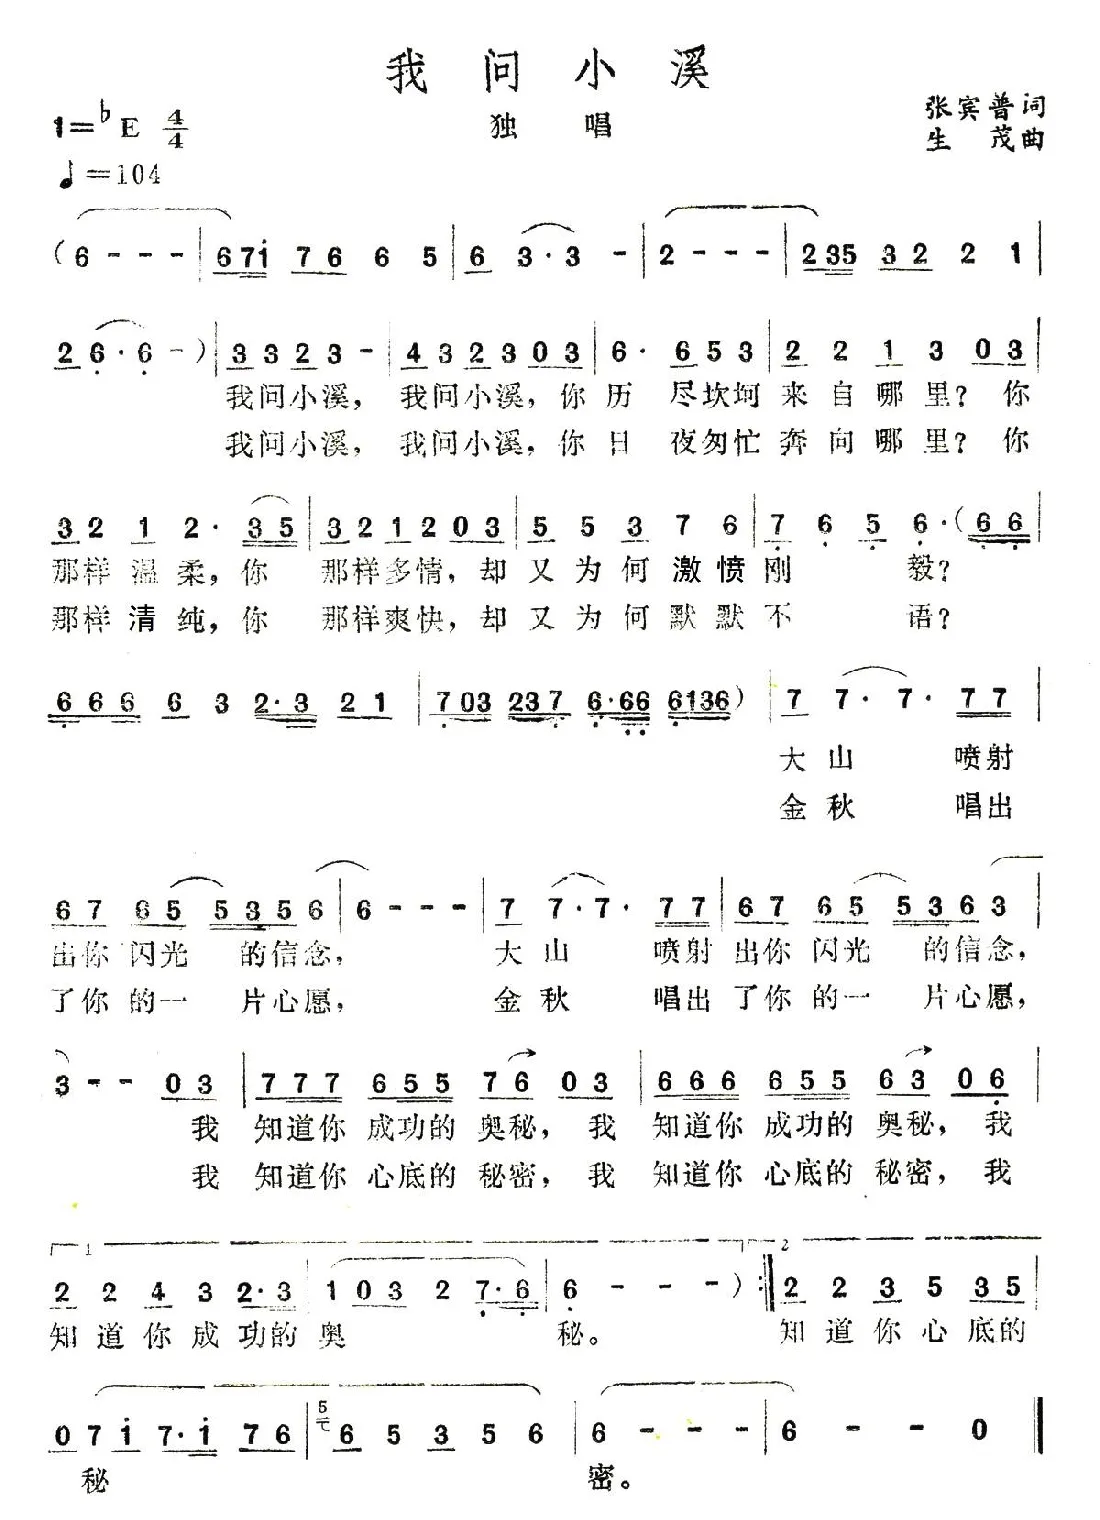 我问小溪
1=♭E 4/4 独唱 张宾普词
生茂曲
♩=104
(6 - - - | 671̇ 76 6 5 | 6 3·3 - | 2 - - - | 235 32 2 1 |
2 6̣·6̣ -) | 3323 - | 432303 | 6· 653 | 2 2 1 3 03 |
我问小溪，我问小溪，你历尽坎坷来自哪里？你
我问小溪，我问小溪，你日夜匆忙奔向哪里？你
32 1 2· 35 | 321203 | 5 5 3 7 6 | 7̣ 6̣ 5̣ 6̣·(6̣6̣ |
那样温柔，你那样多情，却又为何激愤刚毅？
那样清纯，你那样爽快，却又为何默默不语？
6̣66 6 3 2·3 21 | 7̣03 237̣ 6̣·6̣6̣ 6̣136) | 7 7·7· 77 |
大山喷射
金秋唱出
67 65 5356 | 6 - - - | 7 7·7· 77 | 67 65 5363 |
出你闪光的信念，大山喷射出你闪光的信念，
了你的一片心愿，金秋唱出了你的一片心愿，
3 - - 03 | 777 655 76 03 | 666 655 63 06̣ |
我知道你成功的奥秘，我知道你成功的奥秘，我
我知道你心底的秘密，我知道你心底的秘密，我
1 2
2 2 4 3 2·3 | 1 03 2 7̣·6̣ | 6̣ - - -) :‖ 2 2 3 5 35 |
知道你成功的奥秘。知道你心底的
5
0 7 1̇ 7·1̇ 76 | 6 5 3 5 6 | 6 - - - | 6 - - 0 ‖
秘密。